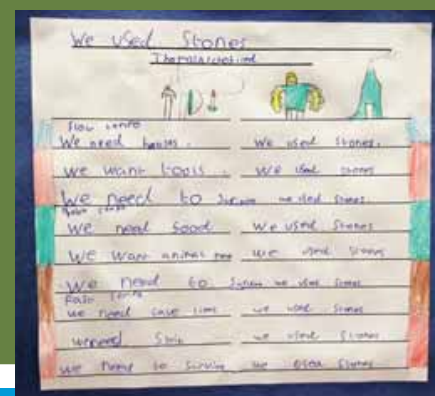 We used Stones
We need houses. We used stones.
We want tools. We used stones
We need to Survive we used stones.
We need food We used Stones
We want animal we used stones
We need to Survive we used stones
we need cave we used stones
we need we used stones
we need to Survive we used stones